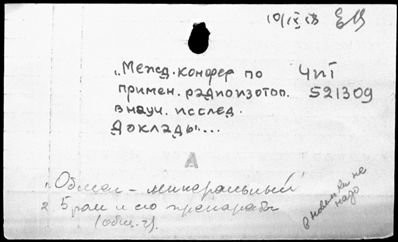 10/IX 58
„Межд. конфер по
примен. радиоизотоп.
в научн. исслед.
Доклады"....
ЧПТ
521309
А
1. Обмен - минеральный
2. Бром и его препараты
(общ. г).
в новинки не
надо